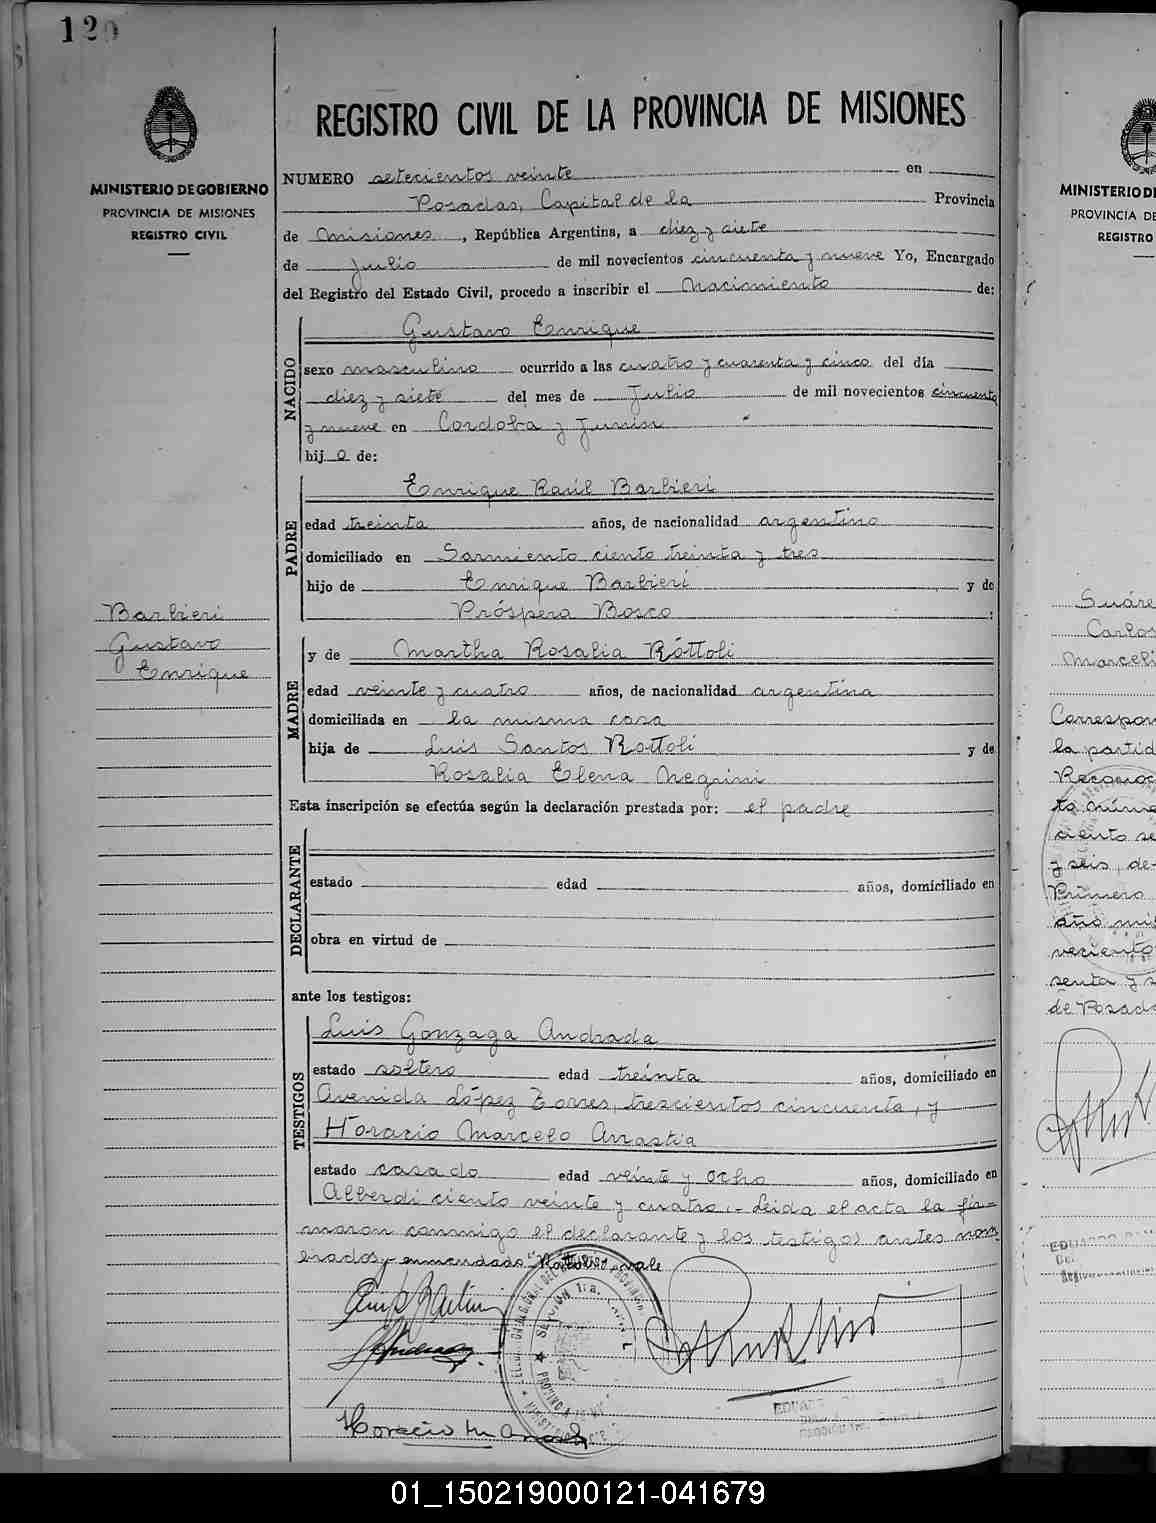 120
MINISTERIO DE GOBIERNO
PROVINCIA DE MISIONES
REGISTRO CIVIL
REGISTRO CIVIL DE LA PROVINCIA DE MISIONES
NUMERO setecientos veinte en
Posadas, Capital de la Provincia
de Misiones, República Argentina, a diez y siete
de Julio de mil novecientos cincuenta y nueve Yo, Encargado
del Registro del Estado Civil, procedo a inscribir el Nacimiento de:
NACIDO
Gustavo Enrique
sexo masculino ocurrido a las cuatro y cuarenta y cinco del día
diez y siete del mes de Julio de mil novecientos cincuenta
y nueve en Cordoba y Junin
hijo de:
PADRE
Enrique Raúl Barbieri
edad treinta años, de nacionalidad argentino
domiciliado en Sarmiento ciento treinta y tres
hijo de Enrique Barbieri y de
Próspera Bosco :
Barbieri
Gustavo
Enrique
MADRE
y de Martha Rosalia Rottoli
edad veinte y cuatro años, de nacionalidad argentina
domiciliada en la misma casa
hija de Luis Santos Rottoli y de
Rosalia Elena Negrini
Esta inscripción se efectúa según la declaración prestada por: el padre
DECLARANTE
estado edad años, domiciliado en
obra en virtud de
ante los testigos:
TESTIGOS
Luis Gonzaga Andrada
estado soltero edad treinta años, domiciliado en
Avenida López Torres, trescientos cincuenta, y
Horacio Marcelo Arrastia
estado casado edad veinte y ocho años, domiciliado en
Alberdi ciento veinte y cuatro.- Leida el acta la fir-
maron conmigo el declarante y los testigos antes nom
brados enmendado "Rottoli" vale
Horacio M
SECCION 1ra.
MINISTERIO DE
PROVINCIA DE
REGISTRO
Suáre
Carlos
Marceli
Correspon
la partid
Reconoc
to núme
ciento se
y seis, de
Primero
año mil
veciento
senta y s
de Posada
EDUARDO
01_150219000121-041679